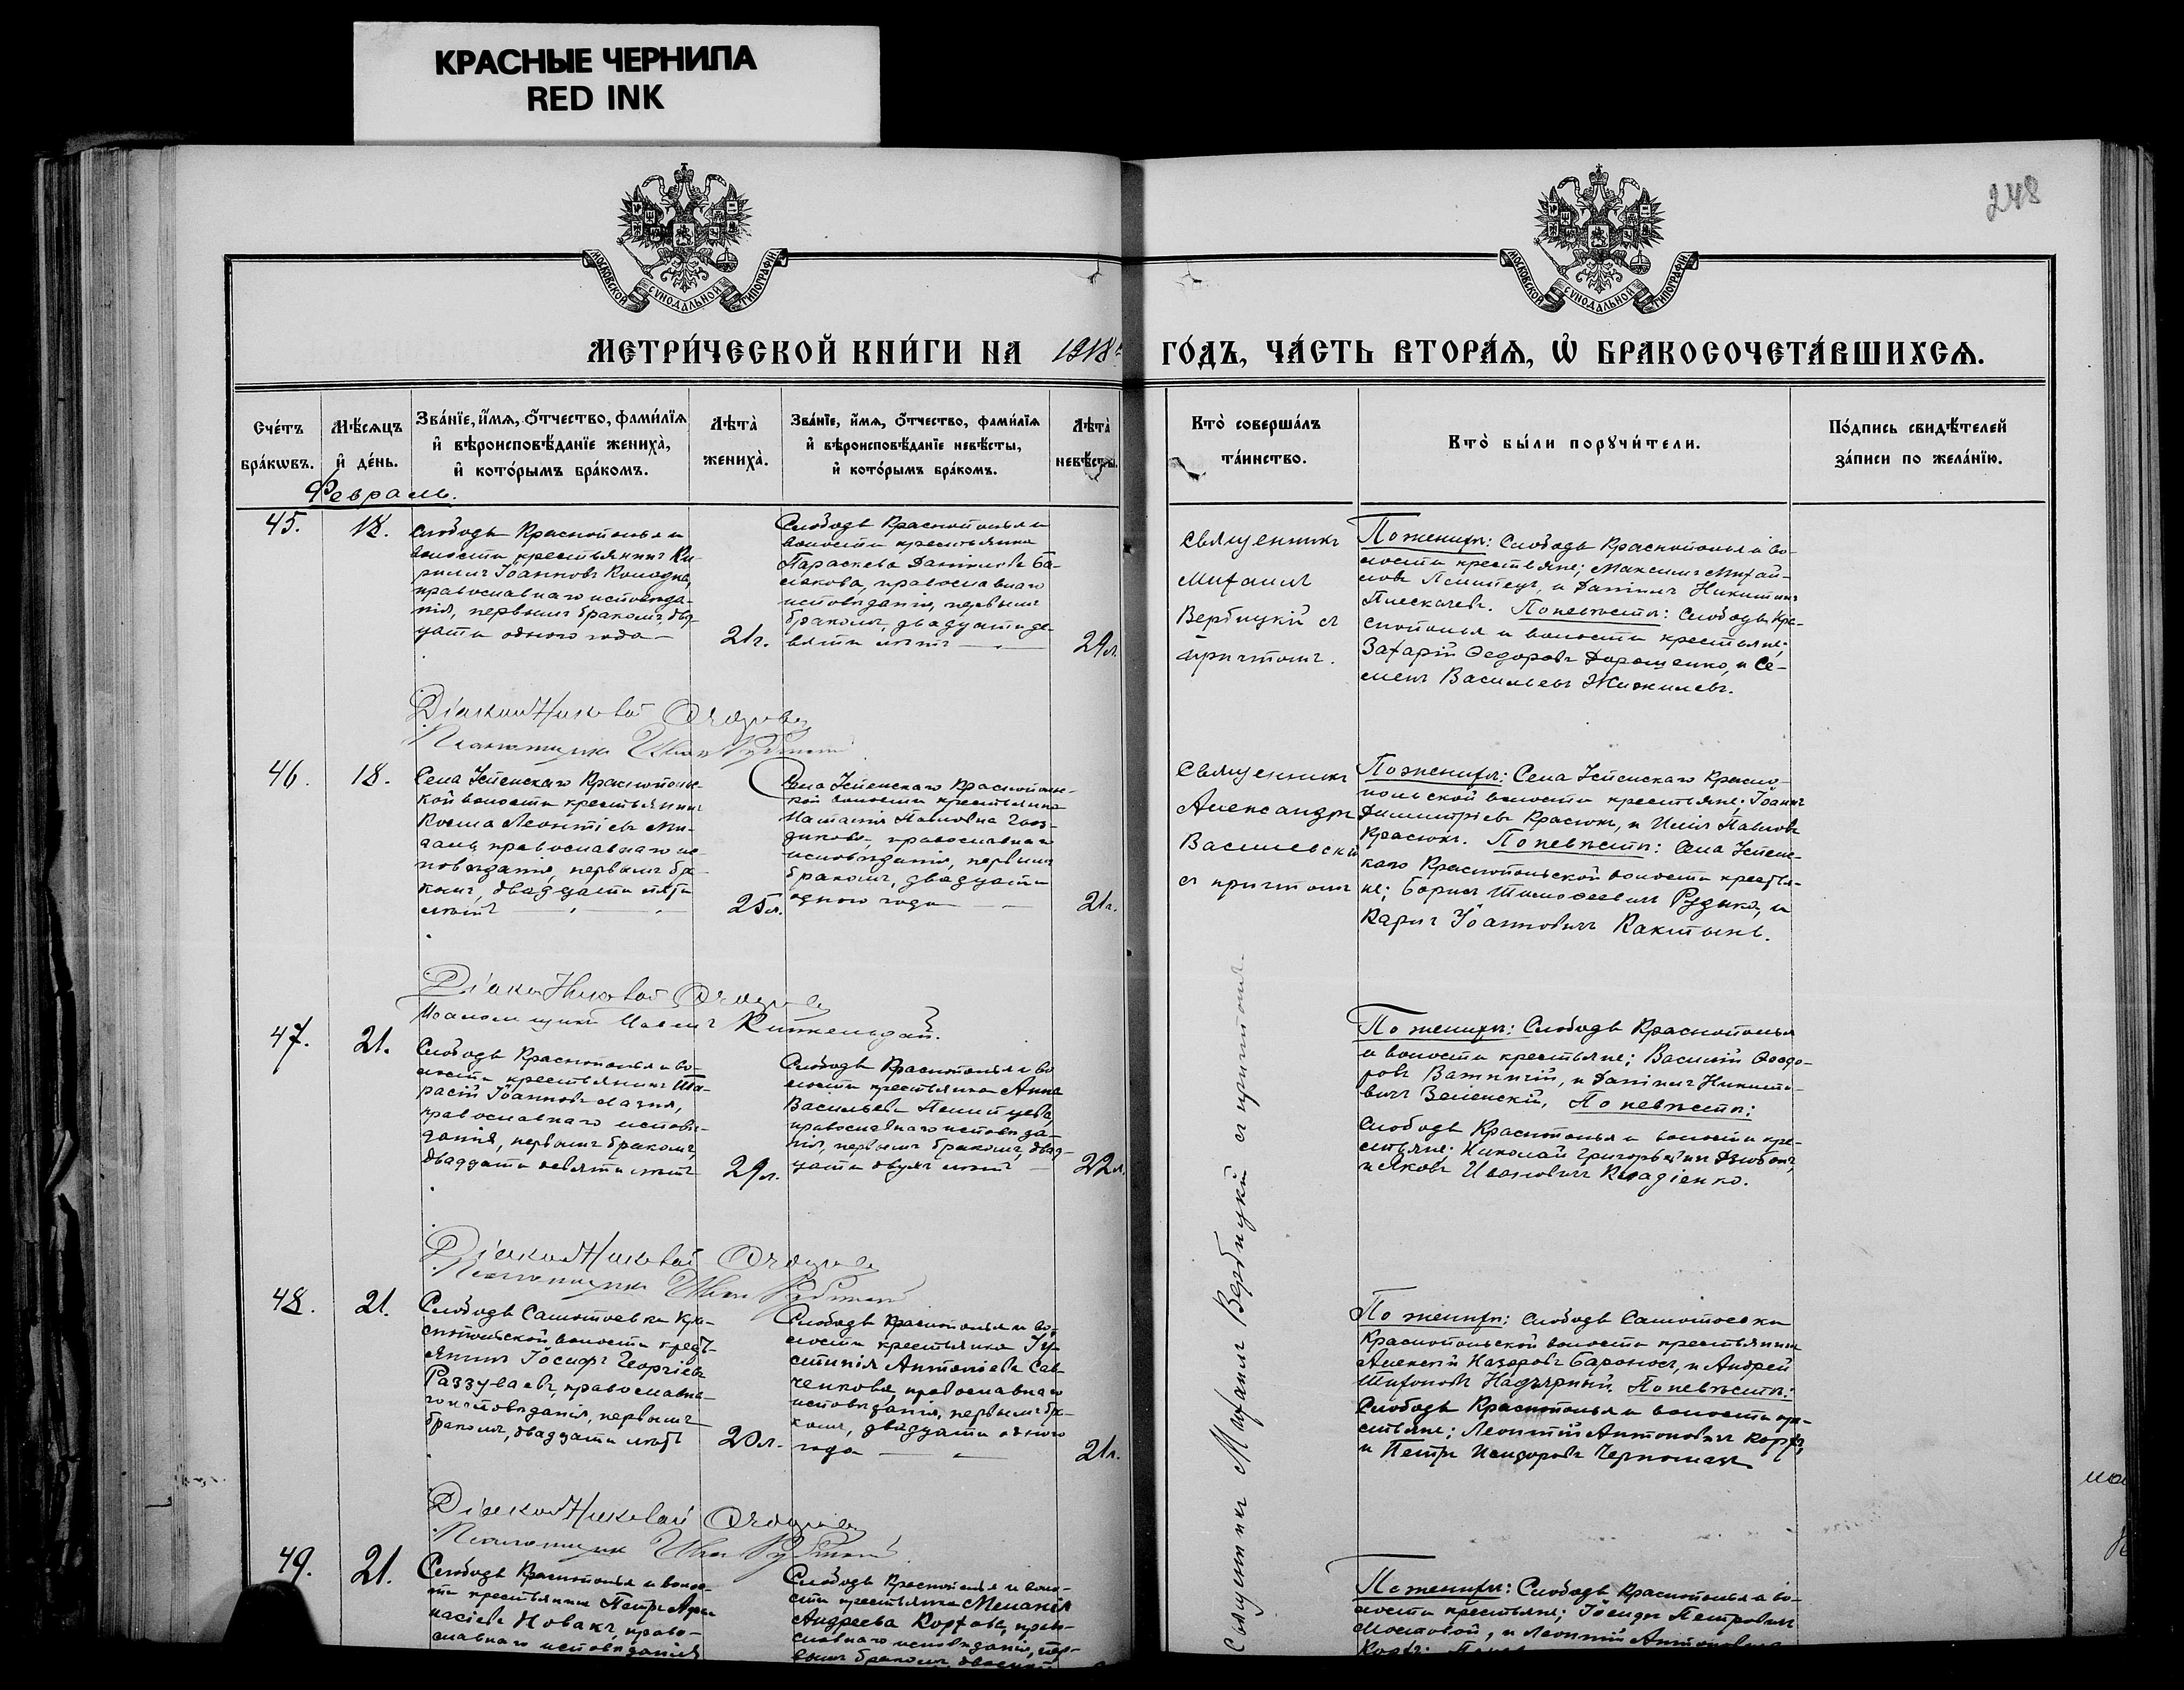 КРАСНЫЕ ЧЕРНИЛА
RED INK
248
МОСКОВСКОЙ СѴНОДАЛЬНОЙ ТИПОГРАФІИ
МОСКОВСКОЙ СѴНОДАЛЬНОЙ ТИПОГРАФІИ
МЕТРИ́ЧЕСКОЙ КНИ́ГИ НА 1918 г.
ГО́ДЪ, ЧА́СТЬ ВТОРА́Я, Ѡ҆ БРАКОСОЧЕТА́ВШИХСЯ.
Сче́тъ
бра́кѡвъ.
Мѣ́сяцъ
и҆ де́нь.
Зва́нїе, и҆́мя, ѻ҆́тчество, фами́лїя
и҆ вѣроисповѣ́данїе жениха̀,
и҆ кото́рымъ бра́комъ.
Лѣта̀
жениха̀.
Зва́нїе, и҆́мя, ѻ҆́тчество, фами́лїя
и҆ вѣроисповѣ́данїе невѣ́сты,
и҆ кото́рымъ бра́комъ.
Лѣта̀
невѣ́сты.
Кто̀ соверша́лъ
та́инство.
Кто̀ бы́ли порꙋчи́тели.
По́дпись свидѣ́телей
за́писи по жела́нїю.
Февраль.
45.
18.
Слободы Краснополья и
волости крестьянинъ Ки-
риллъ Іоанновъ Колодка,
православнаго исповѣда-
нія, первымъ бракомъ, два-
цати одного года
21 г.
Слободы Краснополья и
волости крестьянка
Параскева Даніилова Ба-
православнаго
исповѣданія, первымъ
бракомъ, двадцати де-
вяти лѣтъ
29 л.
Священникъ
Михаилъ
Вербицкій съ
причтомъ.
По женихѣ: Слободы Краснополья и во-
лости крестьяне; Максимъ Михай-
ловъ и Даніилъ Никитинъ
Плескачевъ. По невѣстѣ: Слободы Кра-
снополья и волости крестьяне;
Захарій Ѳедоровъ Дорошенко, и Се-
менъ Васильевъ Жижилевъ.
Діаконъ Николай
Псаломщикъ Иванъ
46.
18.
Села Успенскаго Краснополь-
ской волости крестьянинъ
Косма Леонтіевъ Ми-
православнаго ис-
повѣданія, первымъ бра-
комъ, двадцати пяти
лѣтъ
25 л.
Села Успенскаго Краснополь-
ской волости крестьянка
Наталія Павловна Гвоз-
дикова, православнаго
исповѣданія, первымъ
бракомъ, двадцати
одного года
21 г.
Священникъ
Александръ
Василевскій
съ причтомъ
По женихѣ: Села Успенскаго Красно-
польской волости крестьяне; Іоаннъ
Димитріевъ Красюкъ, и Илія Павловъ
Красюкъ. По невѣстѣ: Села Успен-
скаго Краснопольской волости крестья-
не; Борисъ Тимоѳеевичъ Рудыка, и
Карпъ Іоанновичъ
Діаконъ Николай
Псаломщикъ
47.
21.
Слободы Краснополья и во-
лости крестьянинъ Та-
расій Іоанновъ Лазня,
православнаго исповѣ-
данія, первымъ бракомъ,
двадцати девяти лѣтъ
29 л.
Слободы Краснополья и во-
лости крестьянка Анна
Васильева
православнаго исповѣда-
нія, первымъ бракомъ, двад-
цати двухъ лѣтъ
22 л.
По женихѣ: Слободы Краснополья
и волости крестьяне; Василій Ѳеодо-
ровъ и Даніилъ Никити-
вичъ Зеленскій, По невѣстѣ:
Слободы Краснополья и волости кре-
стьяне; Николай Григорьевичъ
и Яковъ Ивановичъ
Священникъ Михаилъ Вербицкій съ причтомъ.
Діаконъ Николай
Псаломщикъ Иванъ
48.
21.
Слободы Самотоевки Кра-
снопольской волости кресть-
янинъ Іосифъ Георгіевъ
православна-
го исповѣданія, первымъ
бракомъ, двадцати лѣтъ
20 л.
Слободы Краснополья и во-
лости крестьянка Іу-
стинія Антоніева Сав-
ченкова, православнаго
исповѣданія, первымъ бра-
комъ, двадцати одного
года
21 г.
По женихѣ: Слободы Самотоевки
Краснопольской волости крестьянинъ
Алексій Назаровъ и Андрей
По невѣстѣ:
Слободы Краснополья и волости кре-
стьяне; Леонтій Антоновичъ Коржъ,
и Петръ Исидоровъ
Діаконъ Николай
Псаломщикъ Иванъ
49.
21.
Слободы Краснополья и волос-
ти крестьянинъ Петръ Аѳа-
насіевъ Новакъ, право-
славнаго исповѣданія
Слободы Краснополья и воло-
сти крестьянка Меланія
Андреева Коржова, право-
славнаго исповѣданія, пер-
вымъ бракомъ,
По женихѣ: Слободы Краснополья и во-
лости крестьяне; Іосифъ Петровичъ
Мостовой, и Леонтій Антоновичъ
Коржъ;